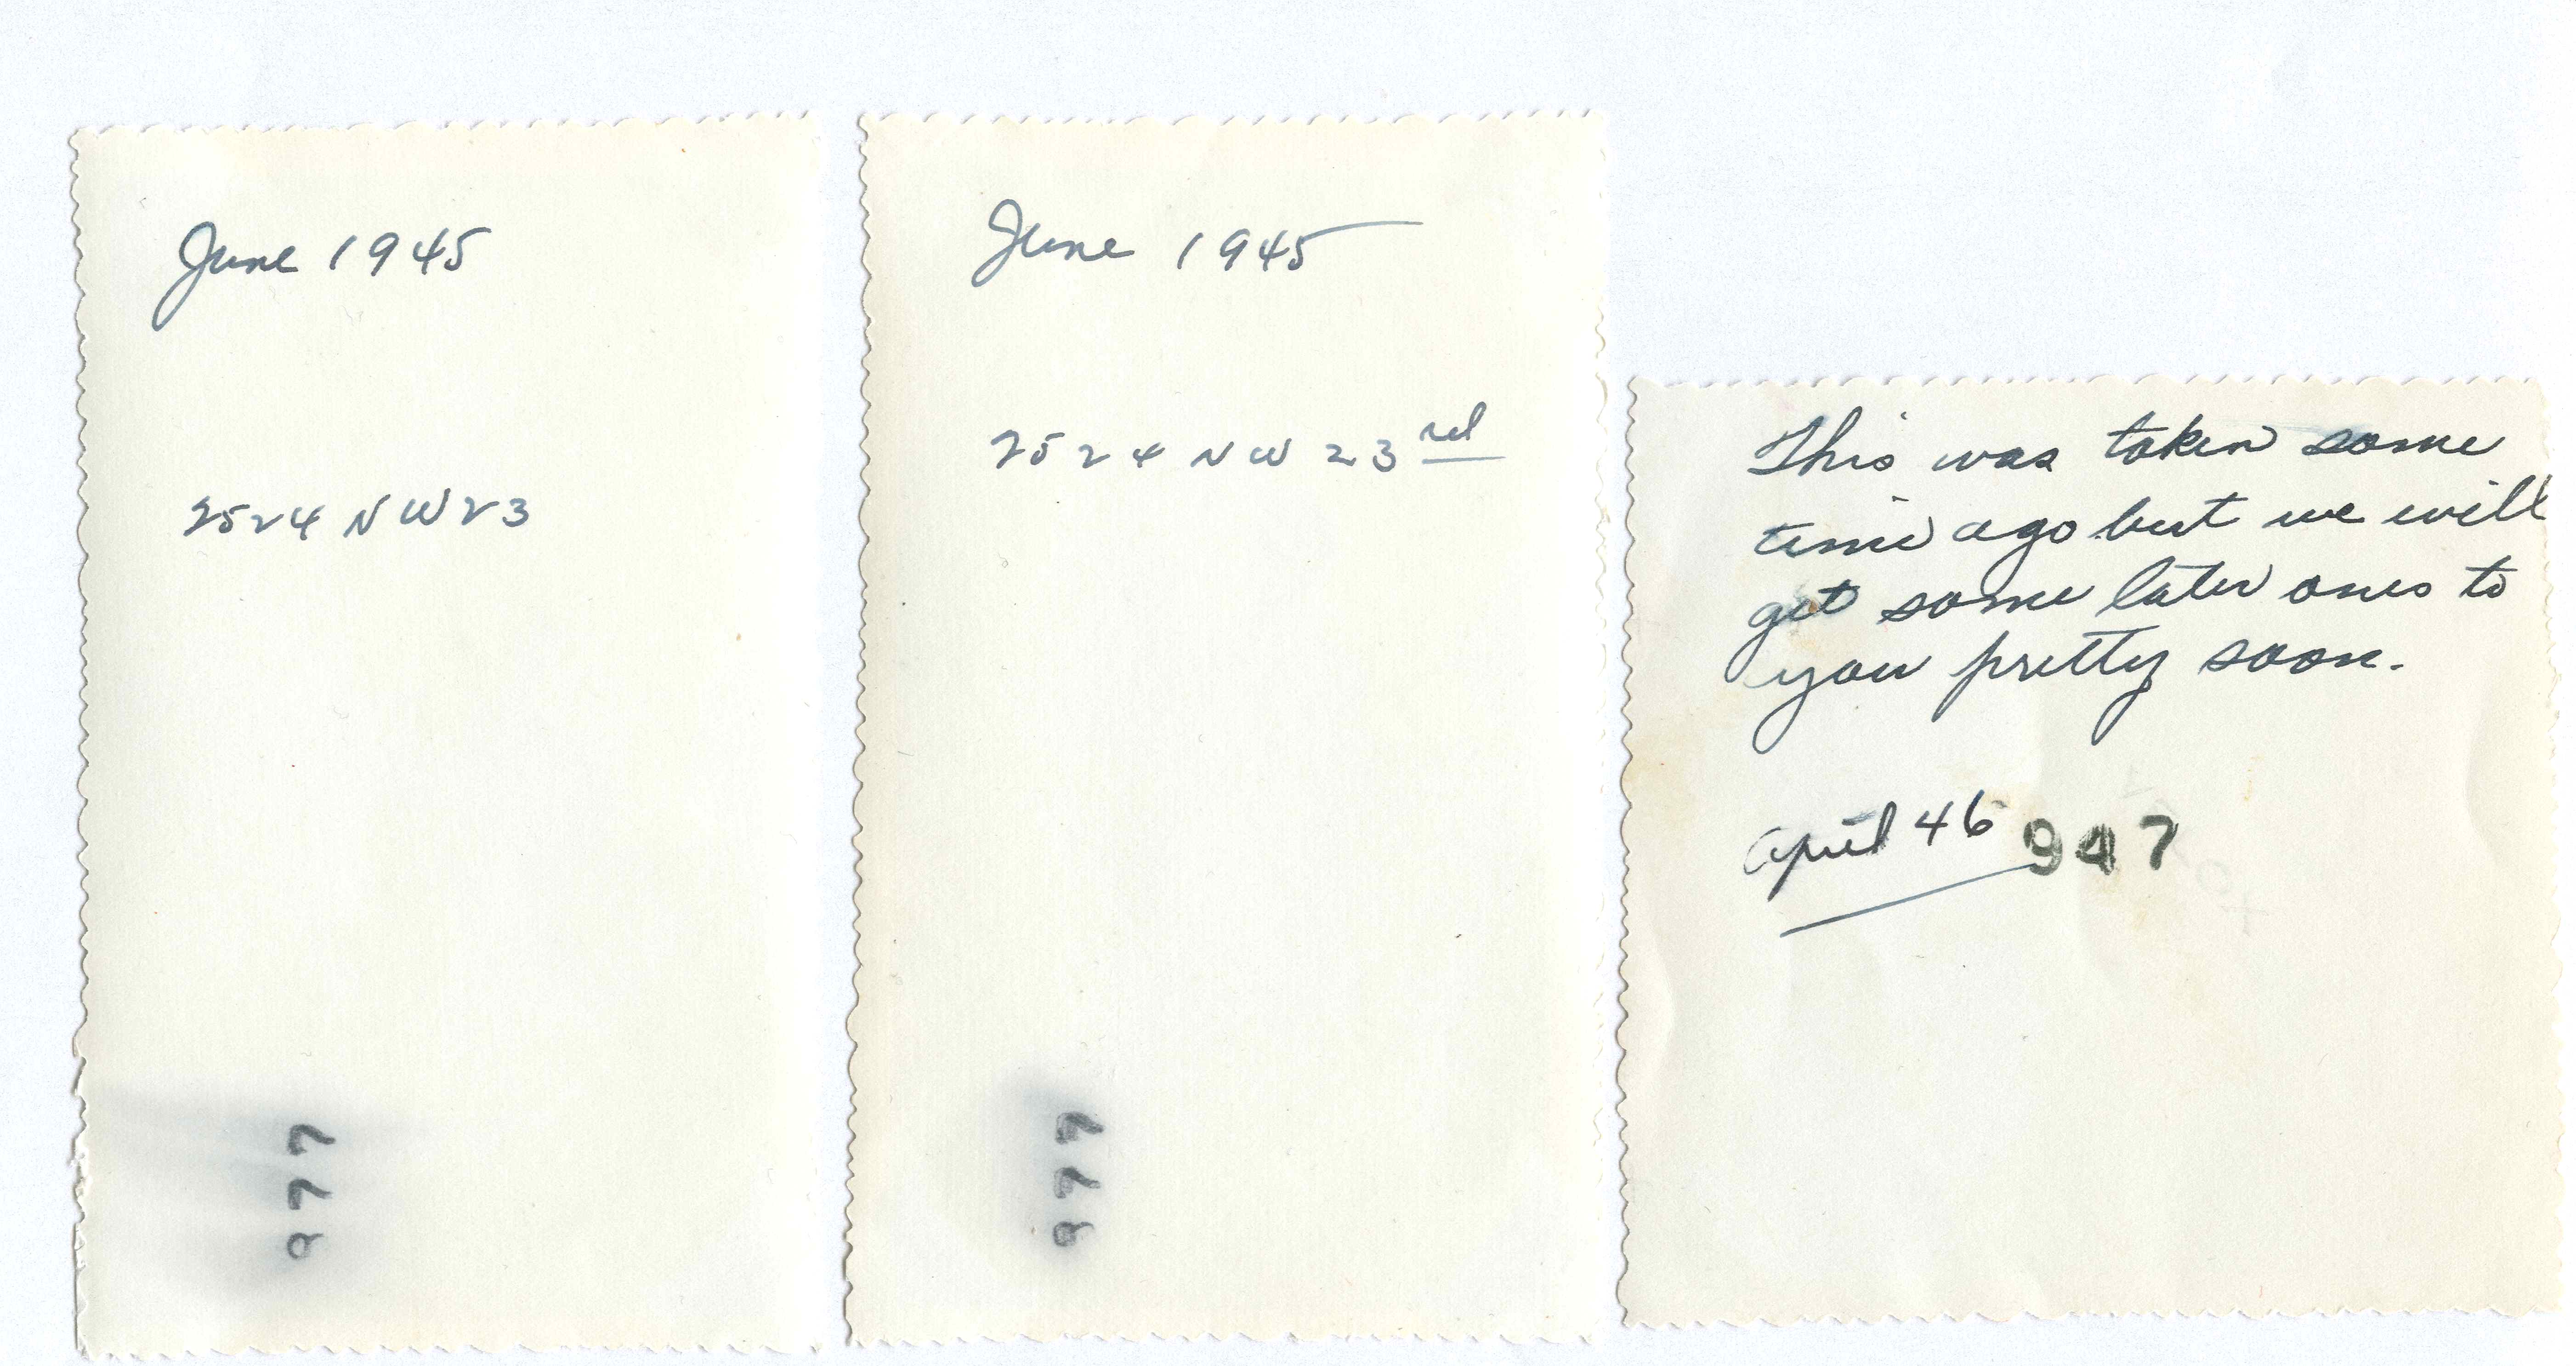 June 1945
2524 NW 23
977
June 1945
2524 NW 23rd
977
This was taken some
time ago but we will
get some later ones to
you pretty soon.
April 46
947